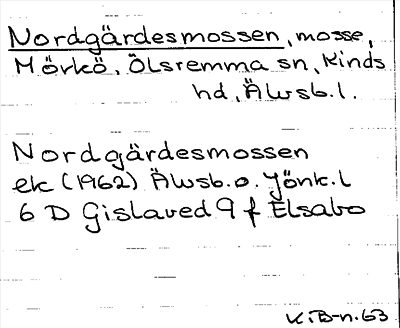 Nordgärdesmossen, mosse,
Mörkö, Ölsremma sn, Kinds
hd, Älvsb. l.
Nordgärdesmossen
ek (1962) Älvsb. o. Jönk. l
6 D Gislaved 9 f Elsabo
K. B-n. 63